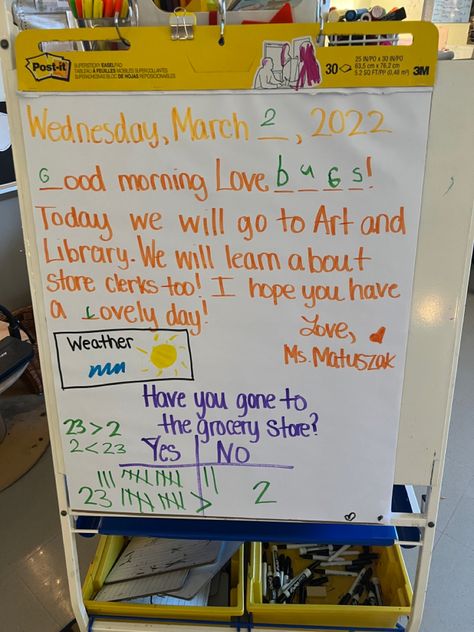 Post-it
SUPERSTICKY EASEL PAD
TABLEAU À FEUILLES MOBILES SUPERCOLLANTES
SUPERADHESIVO BLOC DE HOJAS REPOSICIONABLES
30
25 IN/PO x 30 IN/PO
63,5 cm x 76,2 cm
5.2 SQ FT/PI² (0,48 m²)
3M
Wednesday, March 2, 2022
Good morning Love bugs!
Today we will go to Art and
Library. We will learn about
store clerks too! I hope you have
a Lovely day!
Love,
Ms. Matuszak
Weather
Have you gone to
the grocery store?
23 > 2
2 < 23
Yes NO
23 > 2